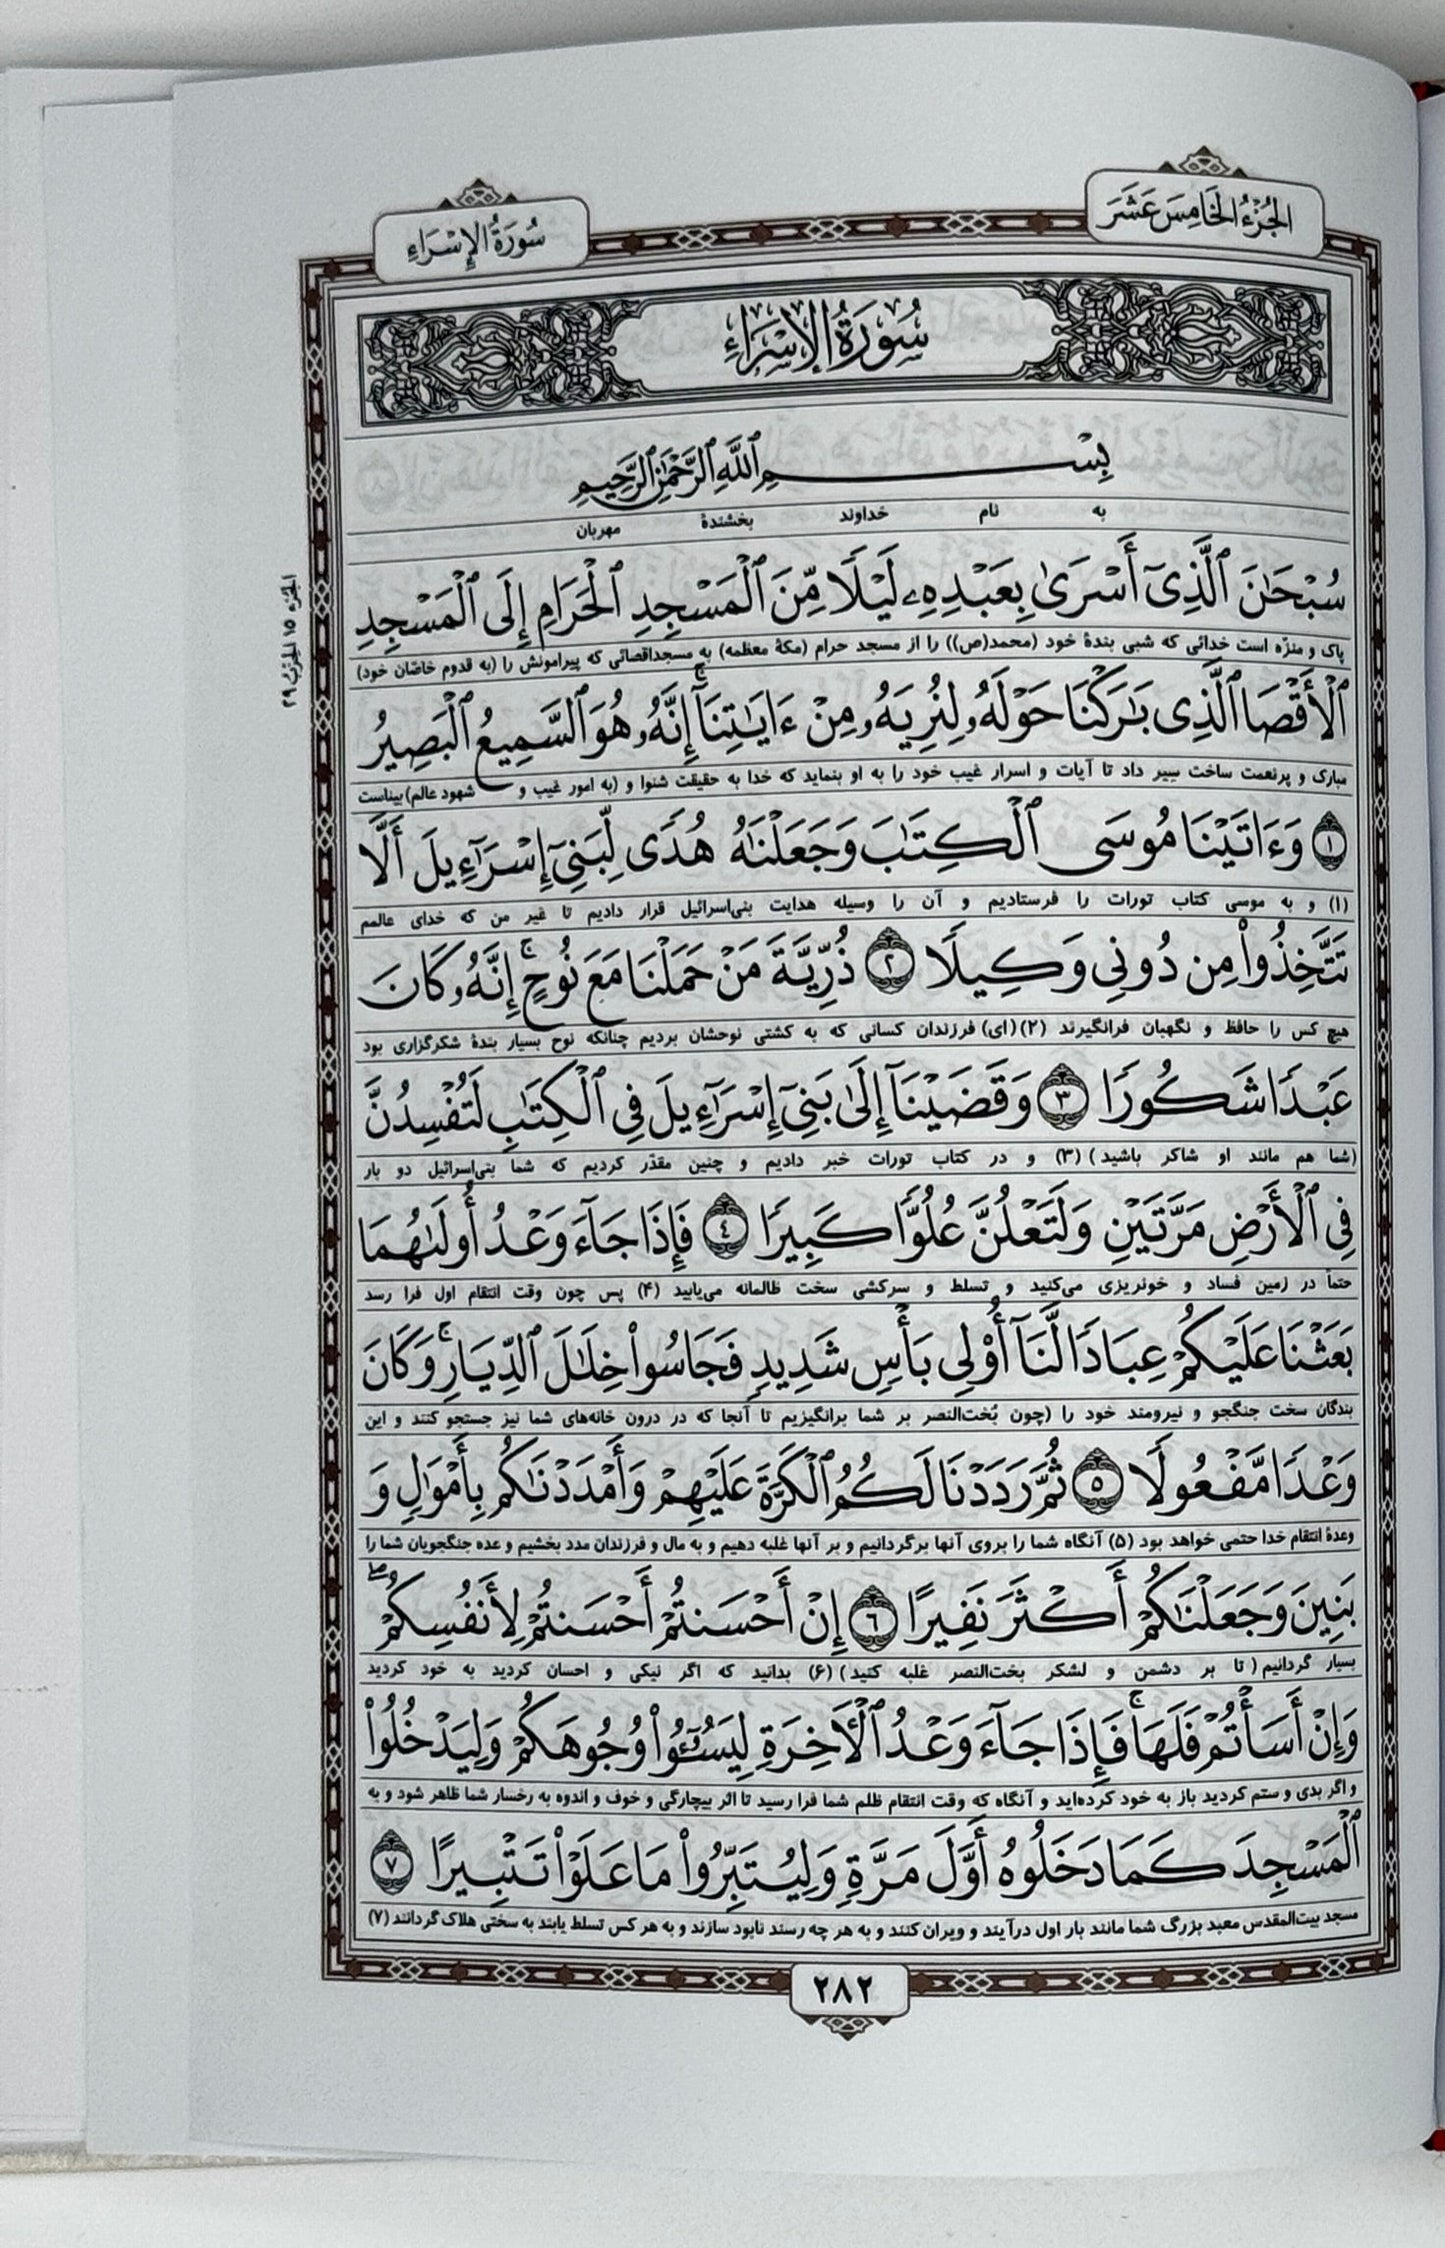 الجُزْءُ الخَامِسَ عَشَرَ
سُورَةُ الإِسْرَاءِ
سُورَةُ الإِسْرَاءِ
بِسْمِ ٱللَّهِ ٱلرَّحْمَٰنِ ٱلرَّحِيمِ
به نام خداوند بخشندهٔ مهربان
سُبْحَٰنَ ٱلَّذِىٓ أَسْرَىٰ بِعَبْدِهِۦ لَيْلًا مِّنَ ٱلْمَسْجِدِ ٱلْحَرَامِ إِلَى ٱلْمَسْجِدِ
پاک و منزّه است خدائی که شبی بندهٔ خود (محمد(ص)) را از مسجد حرام (مکهٔ معظمه) به مسجداقصائی که پیرامونش را (به قدوم خاصّان خود)
ٱلْأَقْصَا ٱلَّذِى بَٰرَكْنَا حَوْلَهُۥ لِنُرِيَهُۥ مِنْ ءَايَٰتِنَآ ۚ إِنَّهُۥ هُوَ ٱلسَّمِيعُ ٱلْبَصِيرُ
مبارک و پرنعمت ساخت سیر داد تا آیات و اسرار غیب خود را به او بنماید که خدا به حقیقت شنوا و (به امور غیب و شهود عالم) بیناست
الجزء ١٥ الحزب ٢٩
١ وَءَاتَيْنَا مُوسَى ٱلْكِتَٰبَ وَجَعَلْنَٰهُ هُدًى لِّبَنِىٓ إِسْرَٰٓءِيلَ أَلَّا
(۱) و به موسی کتاب تورات را فرستادیم و آن را وسیله هدایت بنی‌اسرائیل قرار دادیم تا غیر من که خدای عالمم
تَتَّخِذُوا۟ مِن دُونِى وَكِيلًا ٢ ذُرِّيَّةَ مَنْ حَمَلْنَا مَعَ نُوحٍ ۚ إِنَّهُۥ كَانَ
هیچ کس را حافظ و نگهبان فرانگیرند (۲) (ای) فرزندان کسانی که به کشتی نوحشان بردیم چنانکه نوح بسیار بندهٔ شکرگزاری بود
عَبْدًا شَكُورًا ٣ وَقَضَيْنَآ إِلَىٰ بَنِىٓ إِسْرَٰٓءِيلَ فِى ٱلْكِتَٰبِ لَتُفْسِدُنَّ
(شما هم مانند او شاکر باشید) (۳) و در کتاب تورات خبر دادیم و چنین مقدّر کردیم که شما بنی‌اسرائیل دو بار
فِى ٱلْأَرْضِ مَرَّتَيْنِ وَلَتَعْلُنَّ عُلُوًّا كَبِيرًا ٤ فَإِذَا جَآءَ وَعْدُ أُولَىٰهُمَا
حتماً در زمین فساد و خونریزی می‌کنید و تسلط و سرکشی سخت ظالمانه می‌یابید (۴) پس چون وقت انتقام اول فرا رسد
بَعَثْنَا عَلَيْكُمْ عِبَادًا لَّنَآ أُو۟لِى بَأْسٍ شَدِيدٍ فَجَاسُوا۟ خِلَٰلَ ٱلدِّيَارِ ۚ وَكَانَ
بندگان سخت جنگجو و نیرومند خود را (چون بُخت‌النصر بر شما برانگیزیم تا آنجا که در درون خانه‌های شما نیز جستجو کنند و این
وَعْدًا مَّفْعُولًا ٥ ثُمَّ رَدَدْنَا لَكُمُ ٱلْكَرَّةَ عَلَيْهِمْ وَأَمْدَدْنَٰكُم بِأَمْوَٰلٍ وَ
وعدهٔ انتقام خدا حتمی خواهد بود (۵) آنگاه شما را بروی آنها برگردانیم و بر آنها غلبه دهیم و به مال و فرزندان مدد بخشیم و عده جنگجویان شما را
بَنِينَ وَجَعَلْنَٰكُمْ أَكْثَرَ نَفِيرًا ٦ إِنْ أَحْسَنتُمْ أَحْسَنتُمْ لِأَنفُسِكُمْ ۖ
بسیار گردانیم (تا بر دشمن و لشکر بخت‌النصر غلبه کنید) (۶) بدانید که اگر نیکی و احسان کردید به خود کردید
وَإِنْ أَسَأْتُمْ فَلَهَا ۚ فَإِذَا جَآءَ وَعْدُ ٱلْـَٔاخِرَةِ لِيَسُـۥٓـُٔوا۟ وُجُوهَكُمْ وَلِيَدْخُلُوا۟
و اگر بدی و ستم کردید باز به خود کرده‌اید و آنگاه که وقت انتقام ظلم شما فرا رسید تا اثر بیچارگی و خوف و اندوه به رخسار شما ظاهر شود و به
ٱلْمَسْجِدَ كَمَا دَخَلُوهُ أَوَّلَ مَرَّةٍ وَلِيُتَبِّرُوا۟ مَا عَلَوْا۟ تَتْبِيرًا ٧
مسجد بیت‌المقدس معبد بزرگ شما مانند بار اول درآیند و ویران کنند و به هر چه رسند نابود سازند و به هر کس تسلط یابند به سختی هلاک گردانند (۷)
٢٨٢